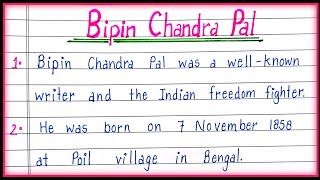 Bipin Chandra Pal
1. Bipin Chandra Pal was a well-known
writer and the Indian freedom fighter.
2. He was born on 7 November 1858
at Poil village in Bengal.